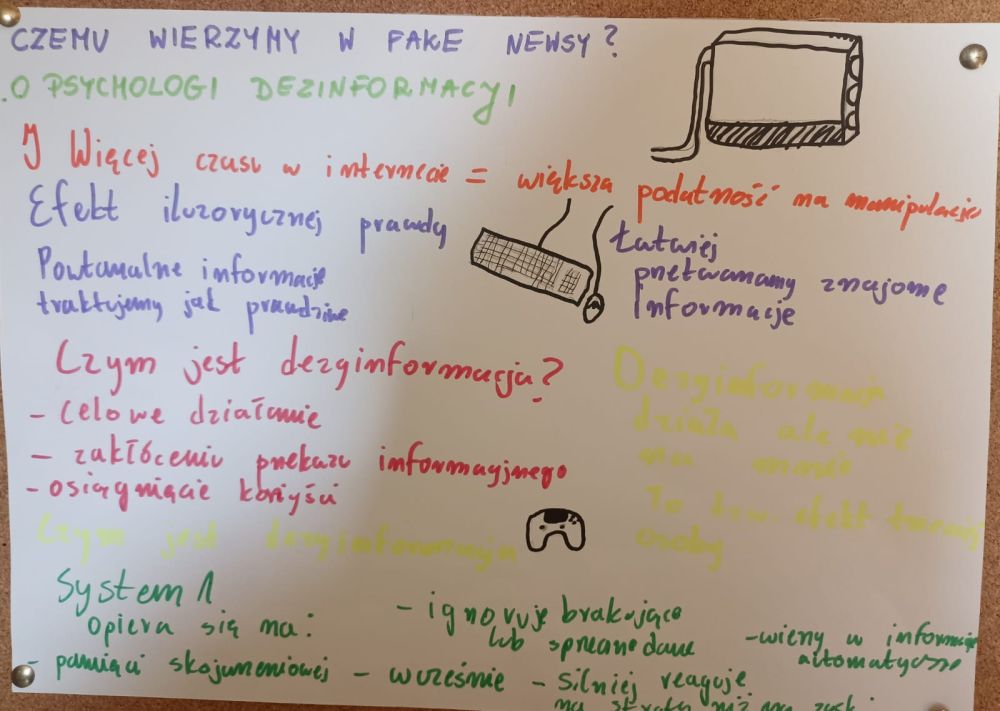 CZEMU WIERZYMY W FAKE NEWSY?
O PSYCHOLOGI DEZINFORMACYJ
Więcej czasu w internecie = większa podatność na manipulacje
Efekt iluzorycznej prawdy
Powtarzalne informacje
traktujemy jak prawdziwe
Łatwiej
przetwarzamy znajome
Informacje
Czym jest dezginformacja?
- celowe działanie
- zakłóceniu przekazu informacyjnego
- osiągnięcie korzyści
Dezginformacja
działa ale nie
na mnie
To tzw. efekt trzeciej
osoby
Czym jest dezginformacja
System 1
opiera się na:
- pamięci skojarzeniowej
- ignoruje brakujące
lub sprzeczne dane
- wierzy w informacje
automatycznie
- silniej reaguje
na straty niż na zysk